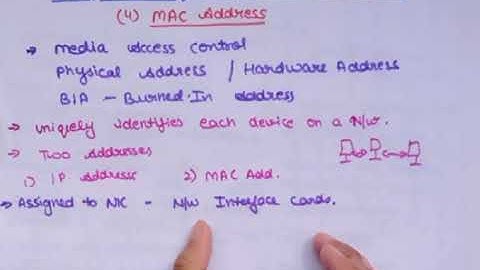 (4) MAC Address
→ media access control
Physical Address / Hardware Address
BIA - Burned-In address
→ uniquely identifies each device on a N/w.
→ Two Addresses
1) IP Address 2) MAC Add.
→ Assigned to NIC - N/W Interface Cards.